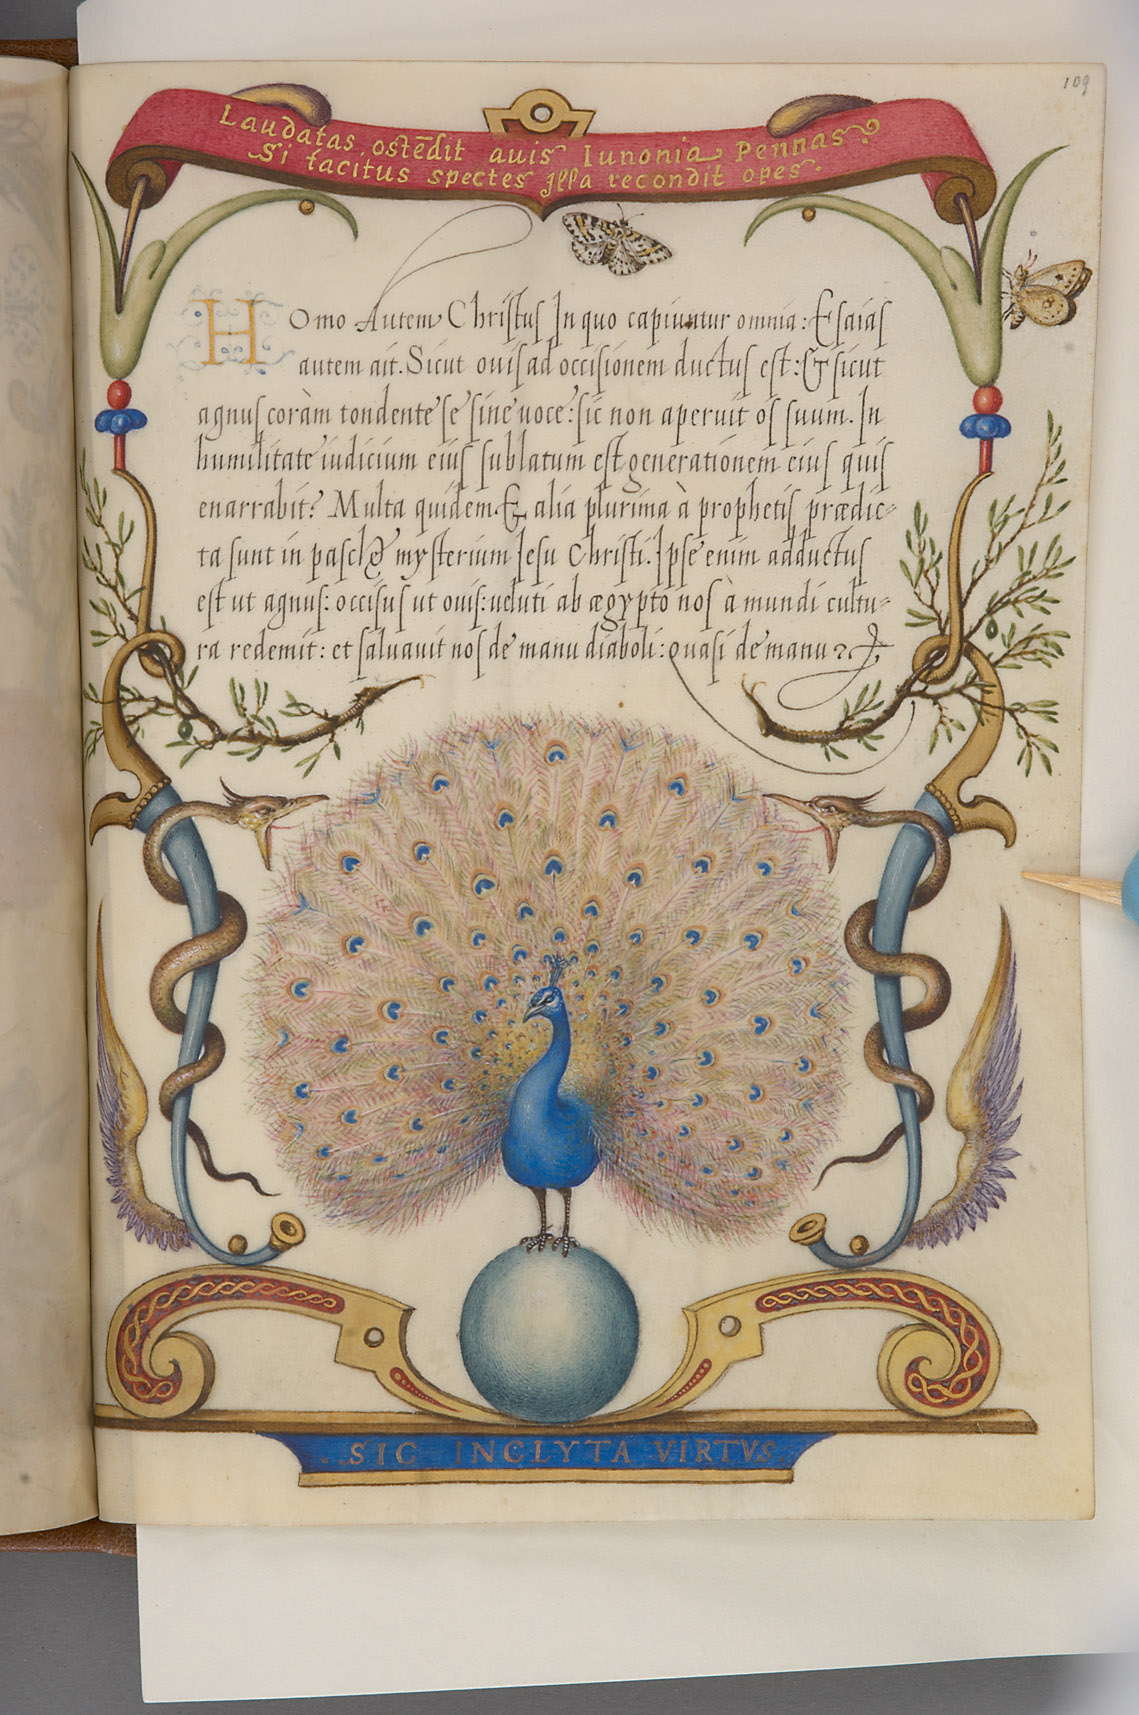 109
Laudatas ostēdit auis Iunonia Pennas
Si tacitus spectes jlla recondit opes.
Homo Autem Christus In quo capiuntur omnia: Esaias
autem ait. Sicut ouis ad occisionem ductus est: & sicut
agnus coràm tondente se sine uoce: sic non aperuit os suum. In
humilitate iudicium eius sublatum est generationem eius quis
enarrabit? Multa quidem & alia plurima à prophetis prædic-
ta sunt in paschæ mysterium Iesu Christi. Ipse enim adductus
est ut agnus: occisus ut ouis: ueluti ab ægypto nos à mundi cultu-
ra redemit: et saluauit nos de manu diaboli: quasi de manu
SIC INCLYTA VIRTVS.